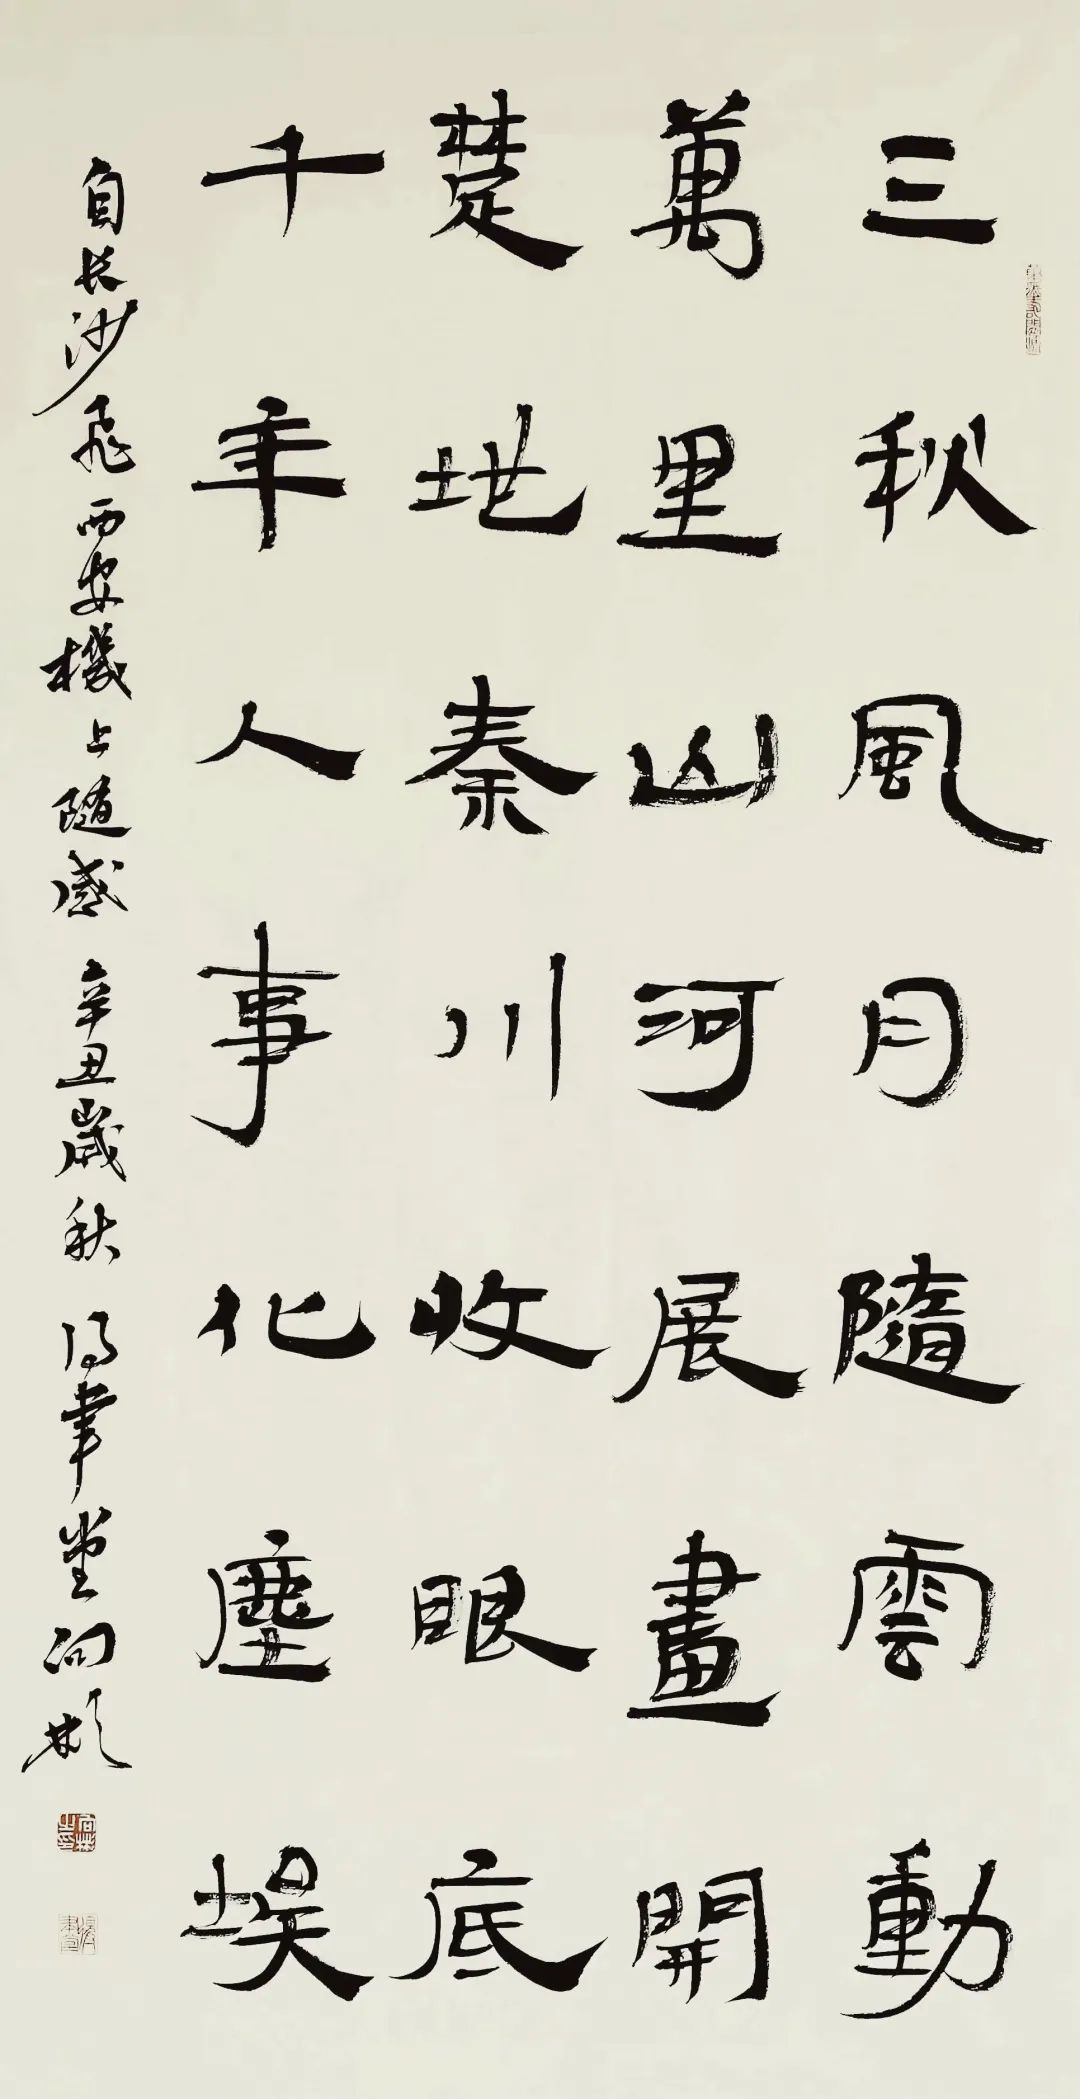 三秋風月隨雲動
萬里山河展畫開
楚地秦川收眼底
千年人事化塵埃
自长沙飛西安機上隨感 辛丑歲秋 得筆堂向彬